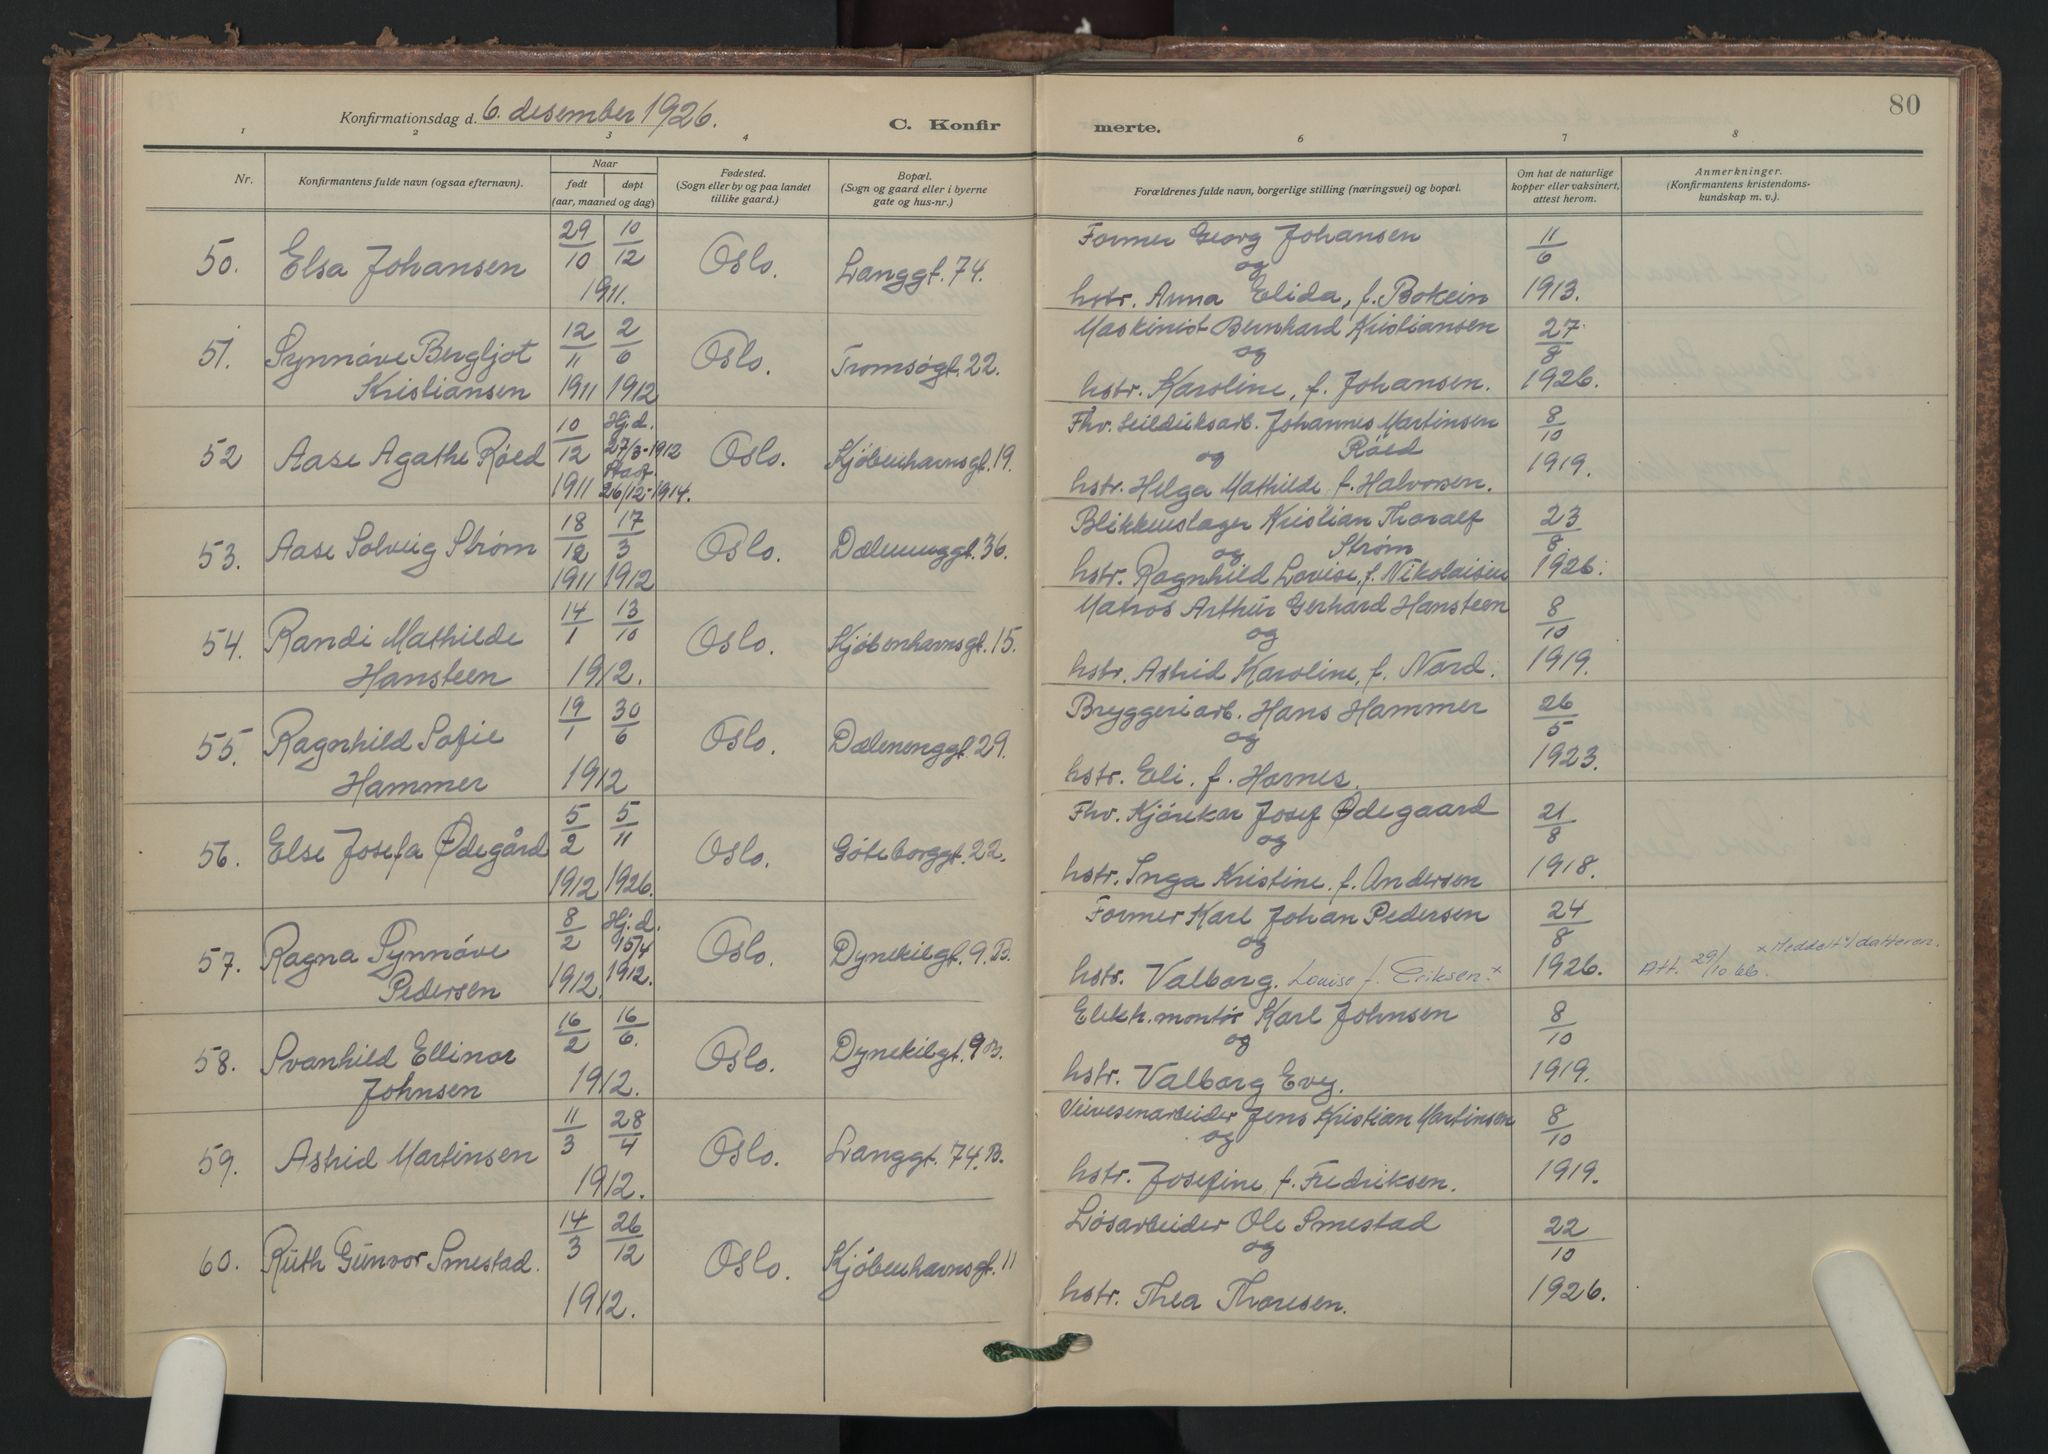 80
Konfirmationsdag d. 6. desember 1926.
C. Konfirmerte.
1 2 3 4 6 7 8
Nr.
Konfirmantens fulde navn (ogsaa efternavn).
Naar
født døpt
(aar, maaned og dag)
Fødested.
(Sogn eller by og paa landet
tillike gaard.)
Bopæl.
(Sogn og gaard eller i byerne
gate og hus-nr.)
Forældrenes fulde navn, borgerlige stilling (næringsvei) og bopæl.
Om hat de naturlige
kopper eller vaksinert,
attest herom.
Anmerkninger.
(Konfirmantens kristendoms-
kundskap m. v.).
50. Elsa Johansen 29/10 10/12 1911. Oslo. Langgt. 74. Former Georg Johansen
og
hstr. Anna Elida, f. Bokein 11/6 1913.
51. Synnöve Bergljot
Kristiansen 12/11 1911 2/6 1912 Oslo. Tromsøgt. 22. Maskinist Bernhard Kristiansen
og
hstr. Karoline, f. Johansen. 27/8 1926.
52 Aase Agathe Röed 10/12 1911 Hj.d.
27/3-1912
Stadf
26/12-1914. Oslo. Kjöbenhavnsgt. 19. Fhv. seilduksarb. Johannes Martinsen
og Röed
hstr. Helga Mathilde f. Halvorsen. 8/10 1919.
53. Aase Solveig Strøm 18/12 1911 17/3 1912 Oslo. Dælenenggt. 36. Blikkenslager Kristian Thoralf
og Strøm
hstr. Ragnhild Lovise, f. Nikolaisen 23/8 1926.
54. Randi Mathilde
Hansteen 14/1 13/10 1912. Oslo. Kjöbenhavnsgt. 15. Matros Arthur Gerhard Hansteen
og
hstr. Astrid Karoline, f. Nord. 8/10 1919.
55. Ragnhild Sofie
Hammer 19/1 30/6 1912 Oslo. Dælenenggt. 29. Bryggeriarb. Hans Hammer
og
hstr. Eli. f. Havnes. 26/5 1923.
56. Else Josefa Ødegård 5/2 1912 5/11 1926. Oslo. Göteborggt. 22. Fhv. Kjörekar Josef Ødegaard
og
hstr. Inga Kristine. f. Andersen 21/8 1918.
57. Ragna Synnöve
Pedersen 8/2 1912. Hj.d.
15/4
1912. Oslo. Dynekilgt. 9. B. Former Karl Johan Pedersen
og
hstr. Valborg. Louise f. Eriksen. x 24/8 1926. Att. 29/10 66. x Meddelt v/datteren.
58. Svanhild Ellinor
Johnsen 16/2 16/6. 1912. Oslo. Dynekilgt. 9 B. Elektr. montör Karl Johnsen
og
hstr. Valborg Evy. 8/10 1919.
59. Astrid Martinsen 11/3 28/4 1912. Oslo. Langgt. 74. B. Veivesenarbeider Jens Kristian Martinsen
og
hstr. Josefine f. Fredriksen. 8/10 1919.
60. Ruth Gunvor Smestad. 14/3 26/12 1912. Oslo. Kjöbenhavnsgt. 11 Løsarbeider Ole Smestad
og
hstr. Thea Thoresen. 22/10 1926.